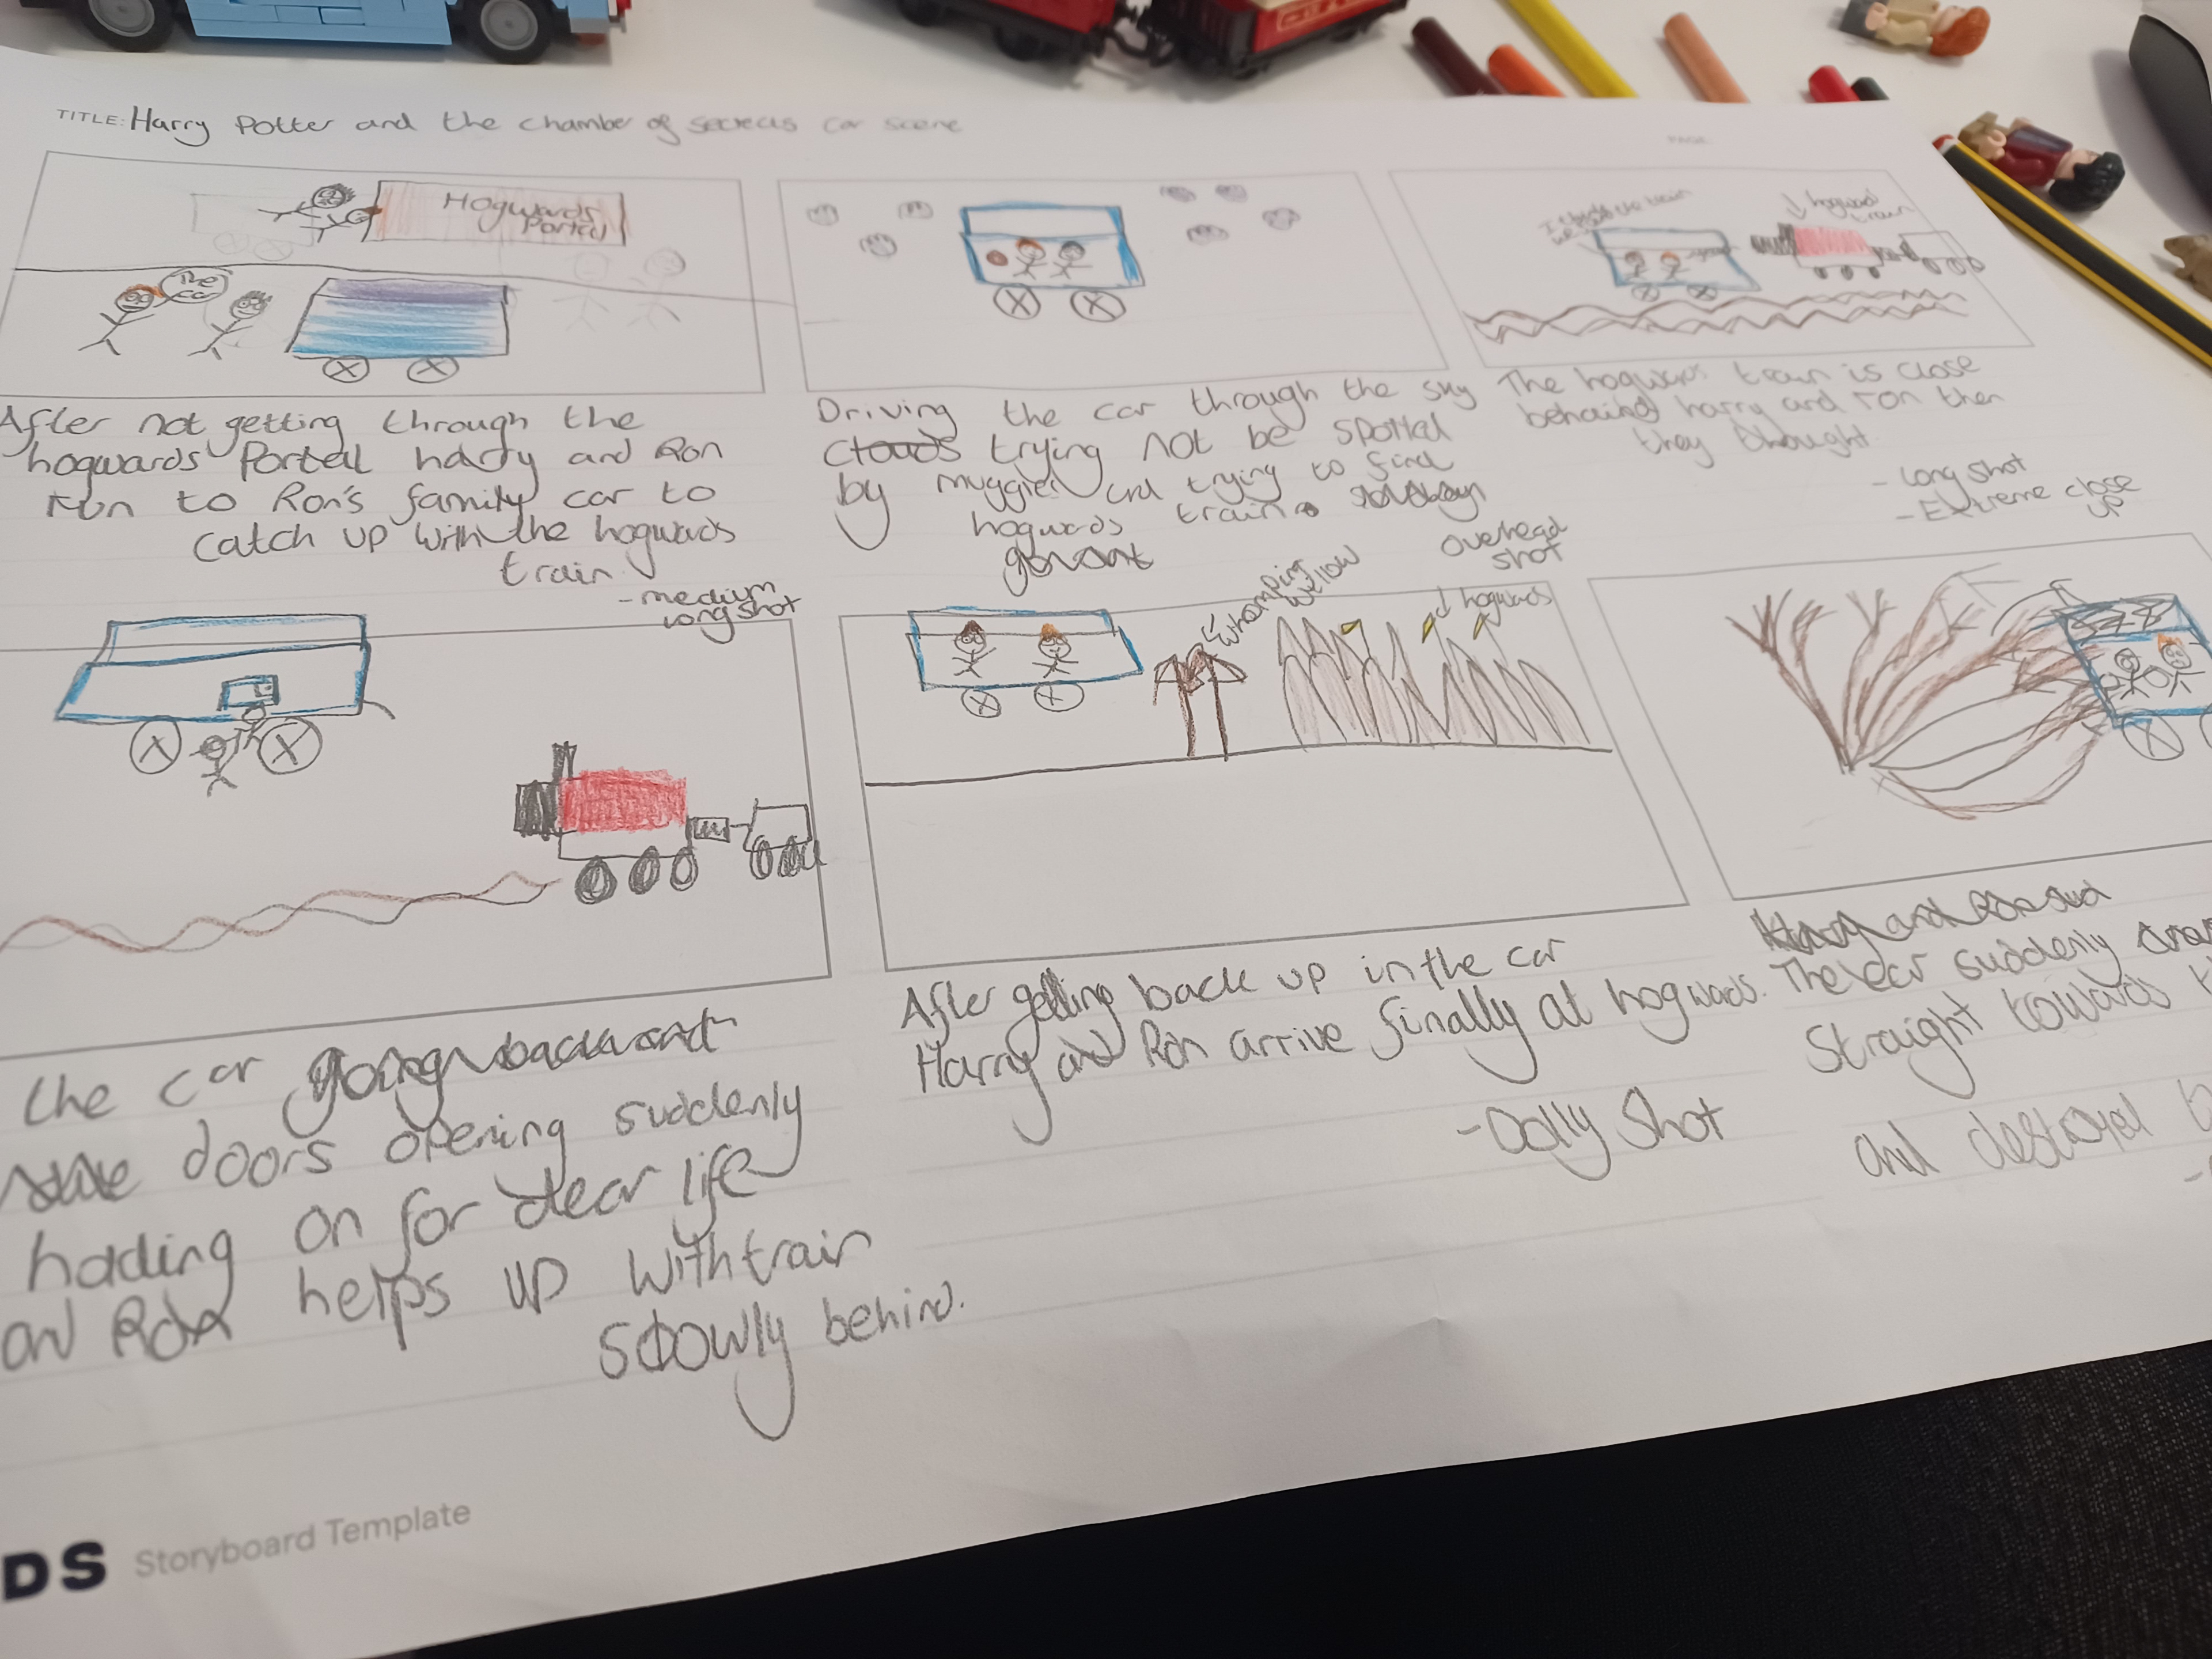 TITLE: Harry Potter and the chamber of secrecus car scene
PAGE:
Hogwards
Portal
The
car
After not getting through the
hogwards Portal harry and Ron
run to Ron's family car to
catch up with the hogwards
train
- medium
long shot
Driving the car through the sky
clouds trying not be spotted
by muggles and trying to find
hogwards train
overhead
shot
hogward
train
The hogwards train is close
behaind harry and ron then
they thought
- long shot
- Extreme close
up
the car going backward
doors opening suddenly
holding on for dear life
and Ron helps up with train
slowly behind.
Whomping
willow
hogwards
After getting back up in the car
Harry and Ron arrive finally at hogwards.
- Dolly Shot
Harry and Ron
The car suddenly
straight towards
and destroyed
DS Storyboard Template